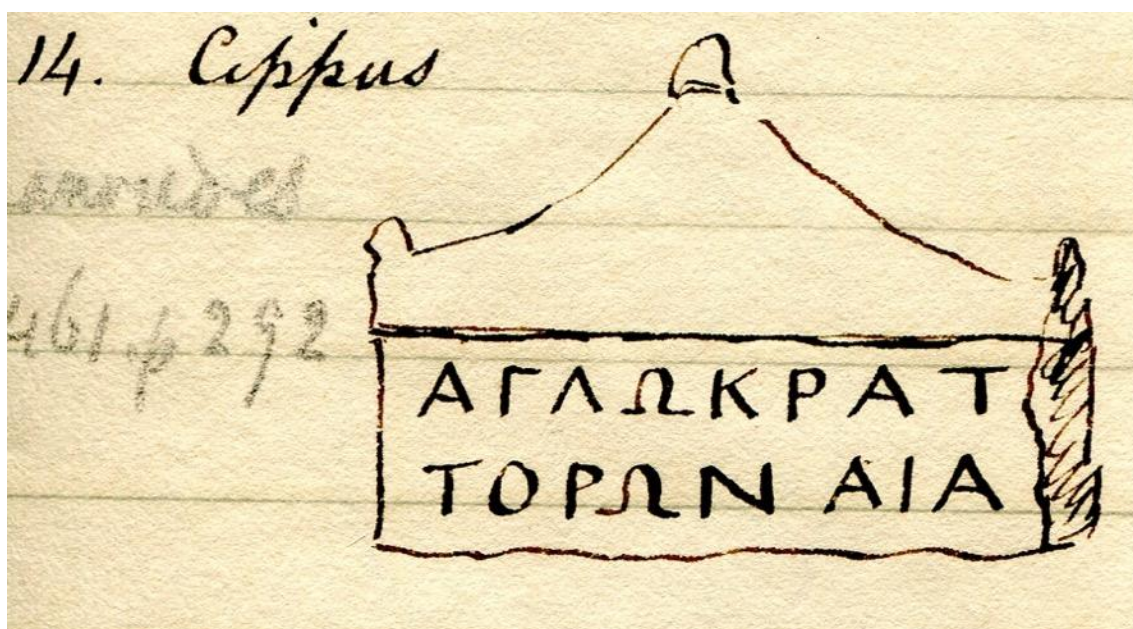 14. Cippus
anoudes
461 p 292
ΑΓΛΩΚΡΑΤ
ΤΟΡΩΝΑΙΑ